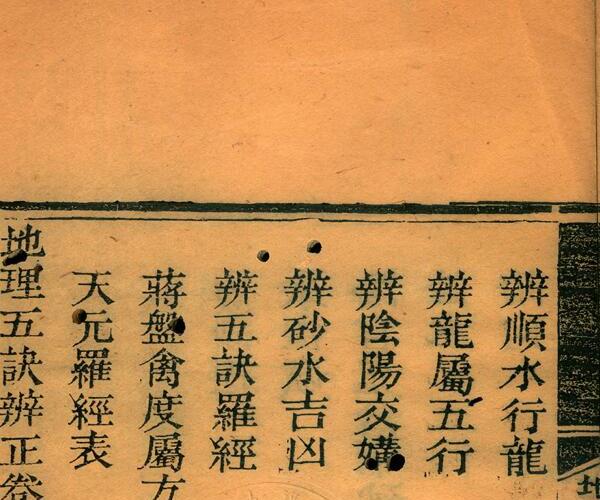 辨順水行龍
辨龍屬五行
辨陰陽交媾
辨砂水吉凶
辨五訣羅經
蔣盤禽度屬
天元羅經表
地理五訣辨正卷